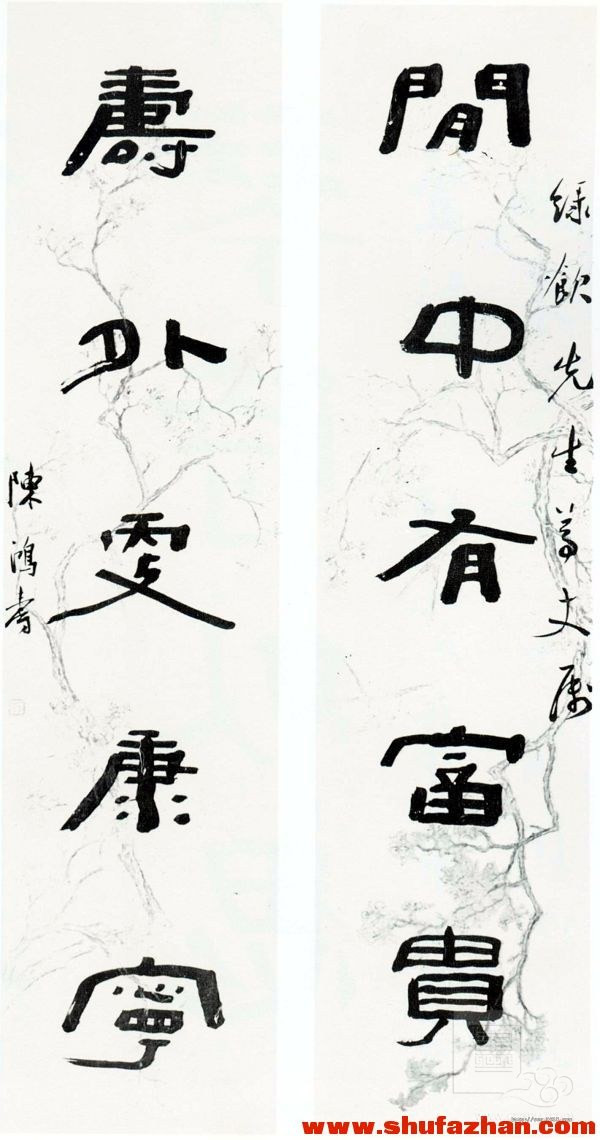 綠飲先生尊丈屬
閒中有富貴
壽外更康寧
陳鴻壽
www.shufazhan.com